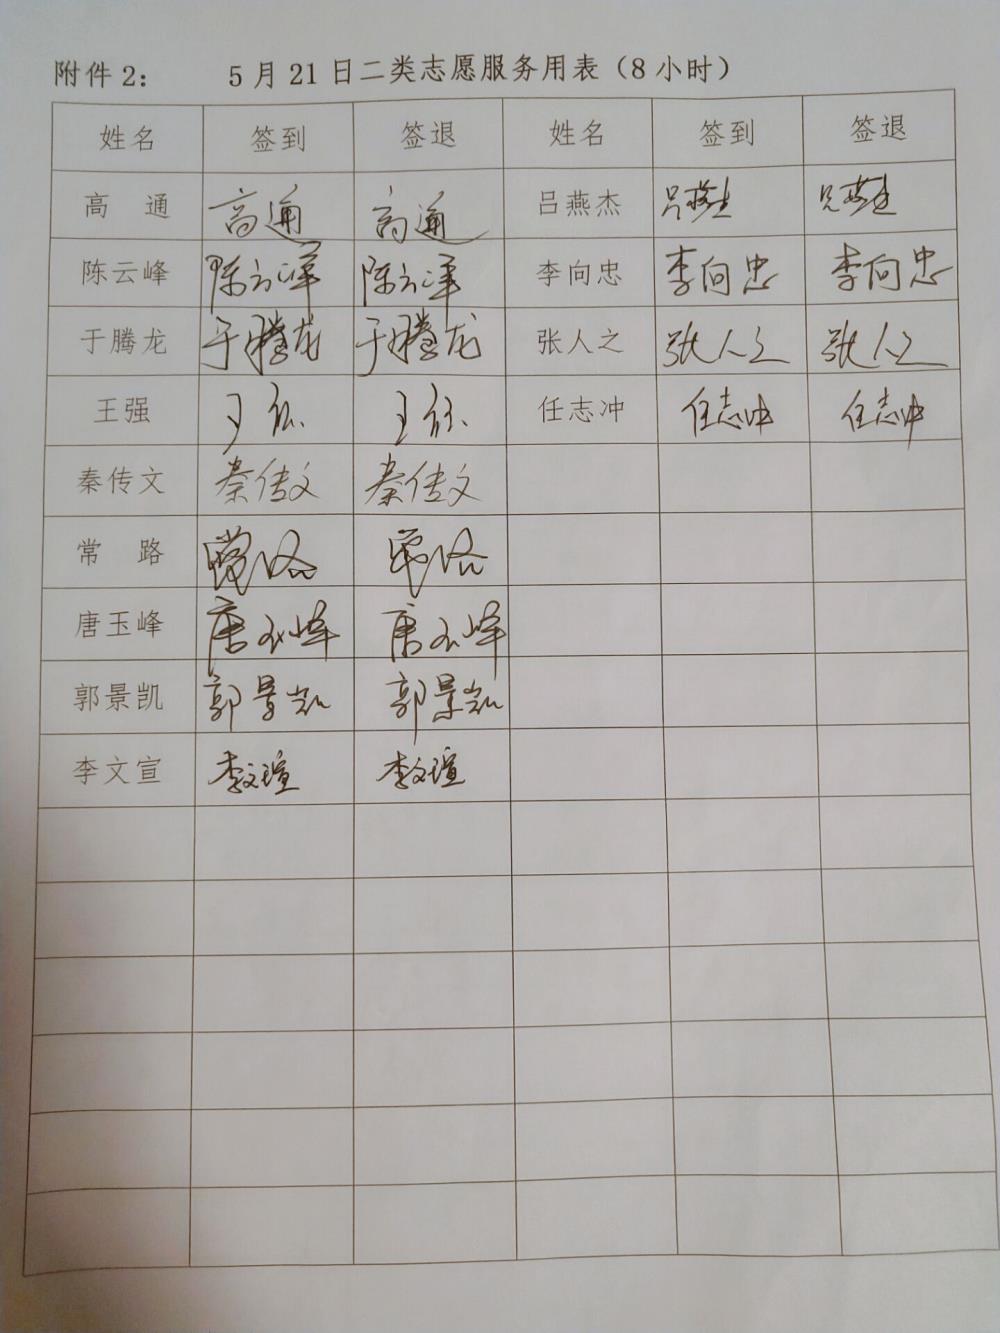 附件2： 5月21日二类志愿服务用表（8小时）
姓名 签到 签退 姓名 签到 签退
高 通 高通 高通 吕燕杰 吕燕杰 吕燕杰
陈云峰 陈云峰 陈云峰 李向忠 李向忠 李向忠
于腾龙 于腾龙 于腾龙 张人之 张人之 张人之
王强 王强 王强 任志冲 任志冲 任志冲
秦传文 秦传文 秦传文
常 路 常路 常路
唐玉峰 唐玉峰 唐玉峰
郭景凯 郭景凯 郭景凯
李文宣 李文瑄 李文瑄